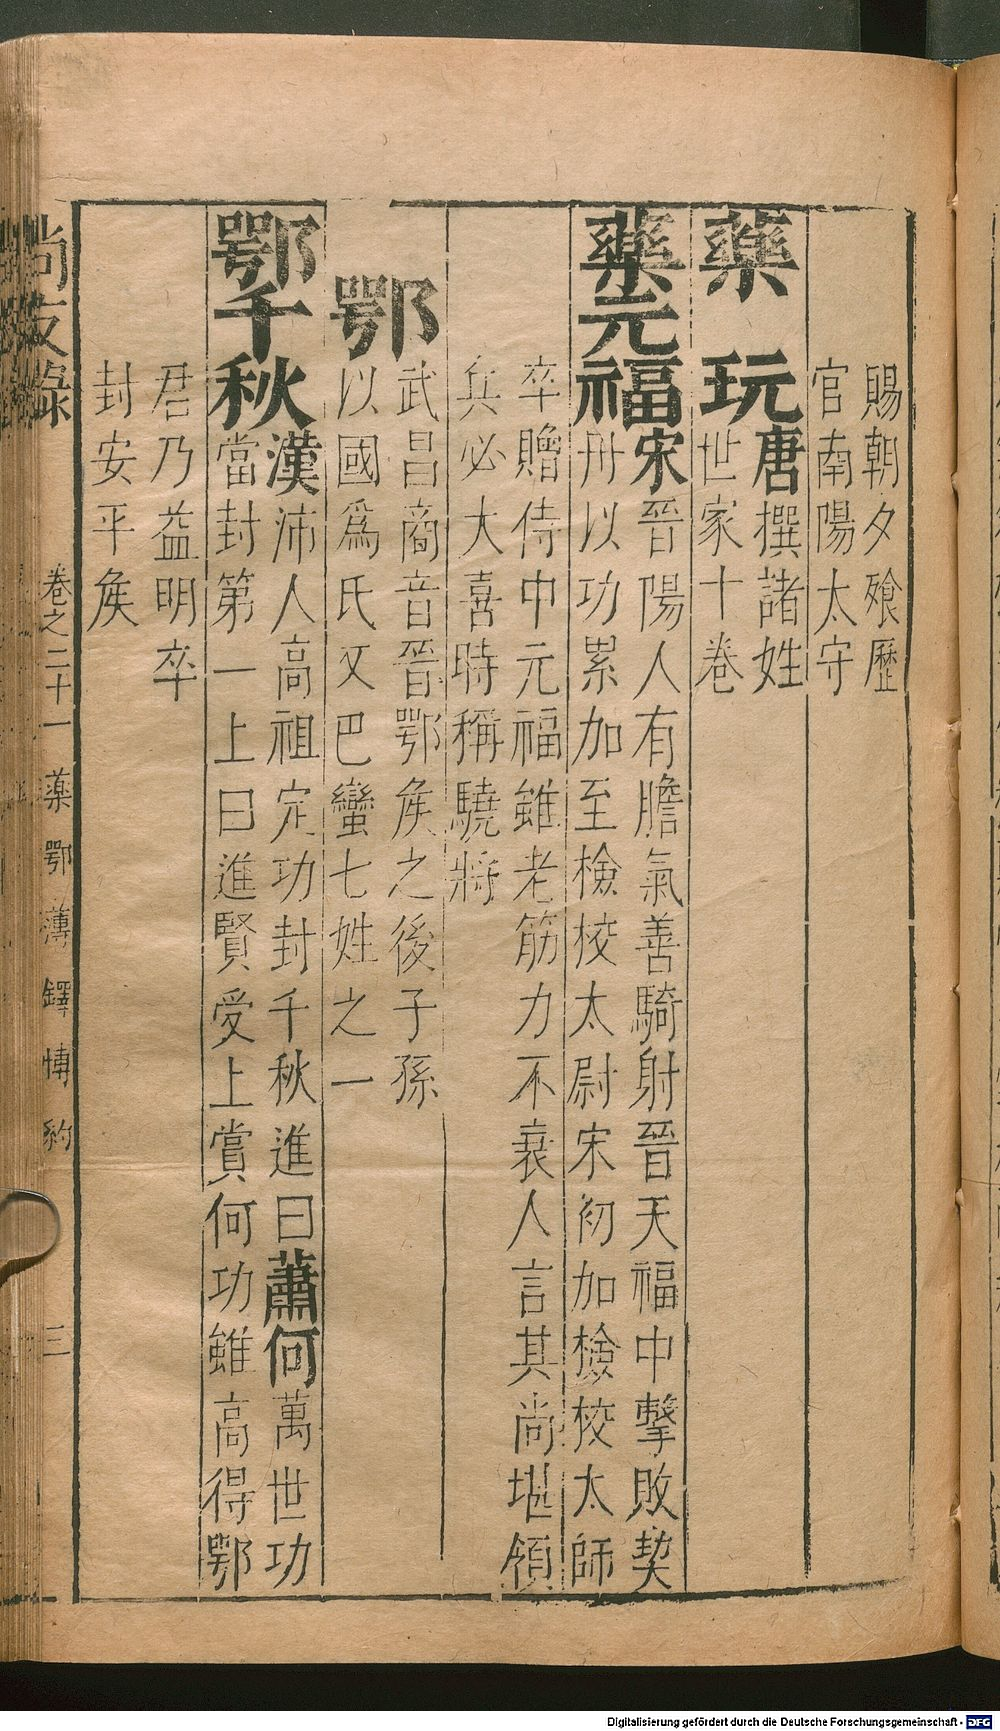 賜朝夕飱歷
官南陽太守
藥玩唐撰諸姓
世家十卷
藥元福宋晉陽人有膽氣善騎射晉天福中擊敗契
丹以功累加至檢校太尉宋初加檢校太師
卒贈侍中元福雖老筋力不衰人言其尚堪領
兵必大喜時稱驍將
鄂
武昌商音晉鄂矦之後子孫
以國爲氏又巴蠻七姓之一
鄂千秋漢沛人高祖定功封千秋進曰蕭何萬世功
當封第一上曰進賢受上賞何功雖高得鄂
君乃益明卒
封安平矦
尚友錄 卷之二十一 藥鄂薄鐸博約 三
Digitalisierung gefördert durch die Deutsche Forschungsgemeinschaft - DFG